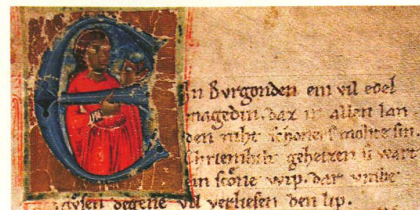 E
n Burgonden ein vil edel
magedin. daz in allen lan
den niht schoners mohte sin.
Chriemhilt geheizen si wart
ein scöne wip. dar umbe
degene vil verliesen den lip.